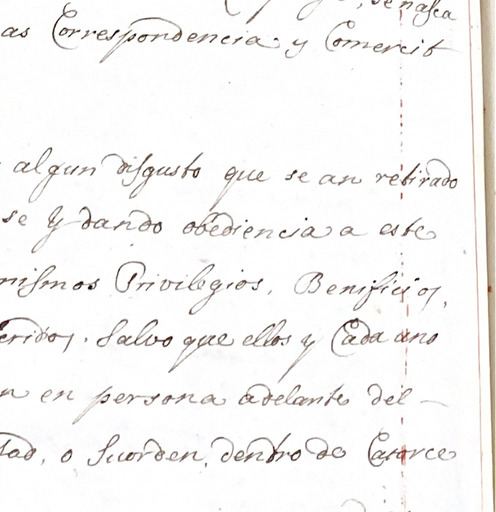 se nasca
as Correspondencia y Comercit
algun disgusto que se an retirado
se Y dando obediencia a este
nismos Privilegios, Benificios,
eridos. Salvo que ellos y Cada uno
n en persona adelante del –
tad, o Suorden, dentro de Catorce